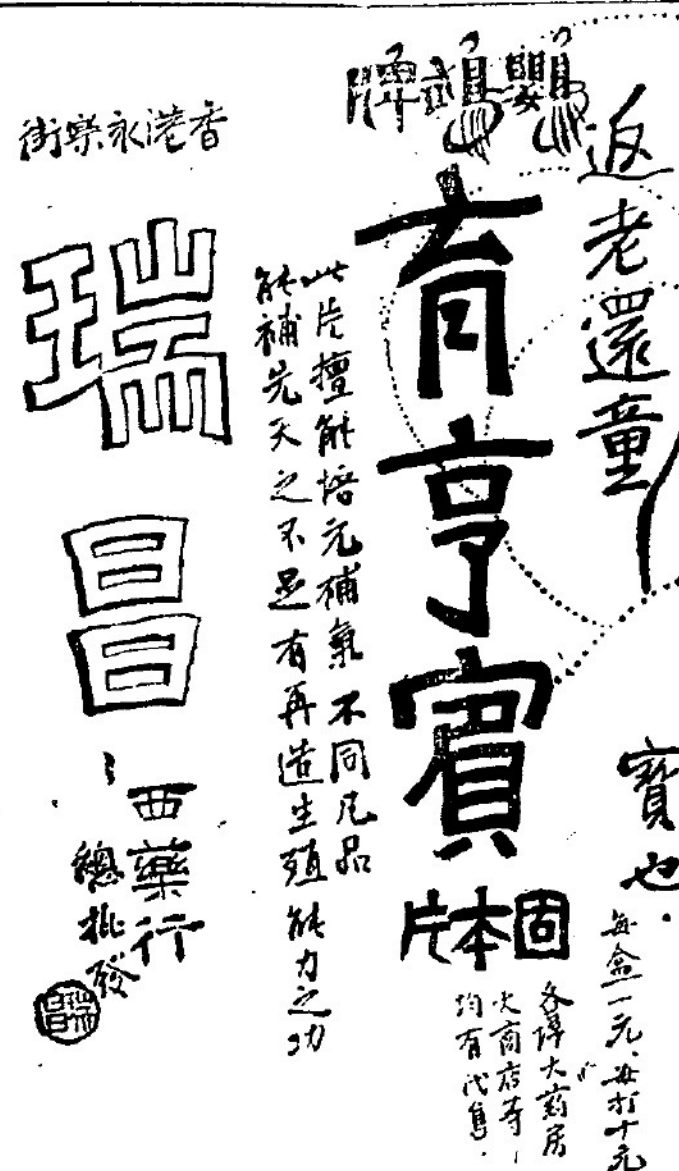 返老還童
寶也。
每盒一元、每打十元
鸚鵡牌
育亨賓
固本片
各埠大葯房
大商店等
均有代售.
此片擅能培元補氣不同凡品
能補先天之不足有再造生殖能力之功
香港永樂街
瑞昌
西藥行
總批發
瑞昌